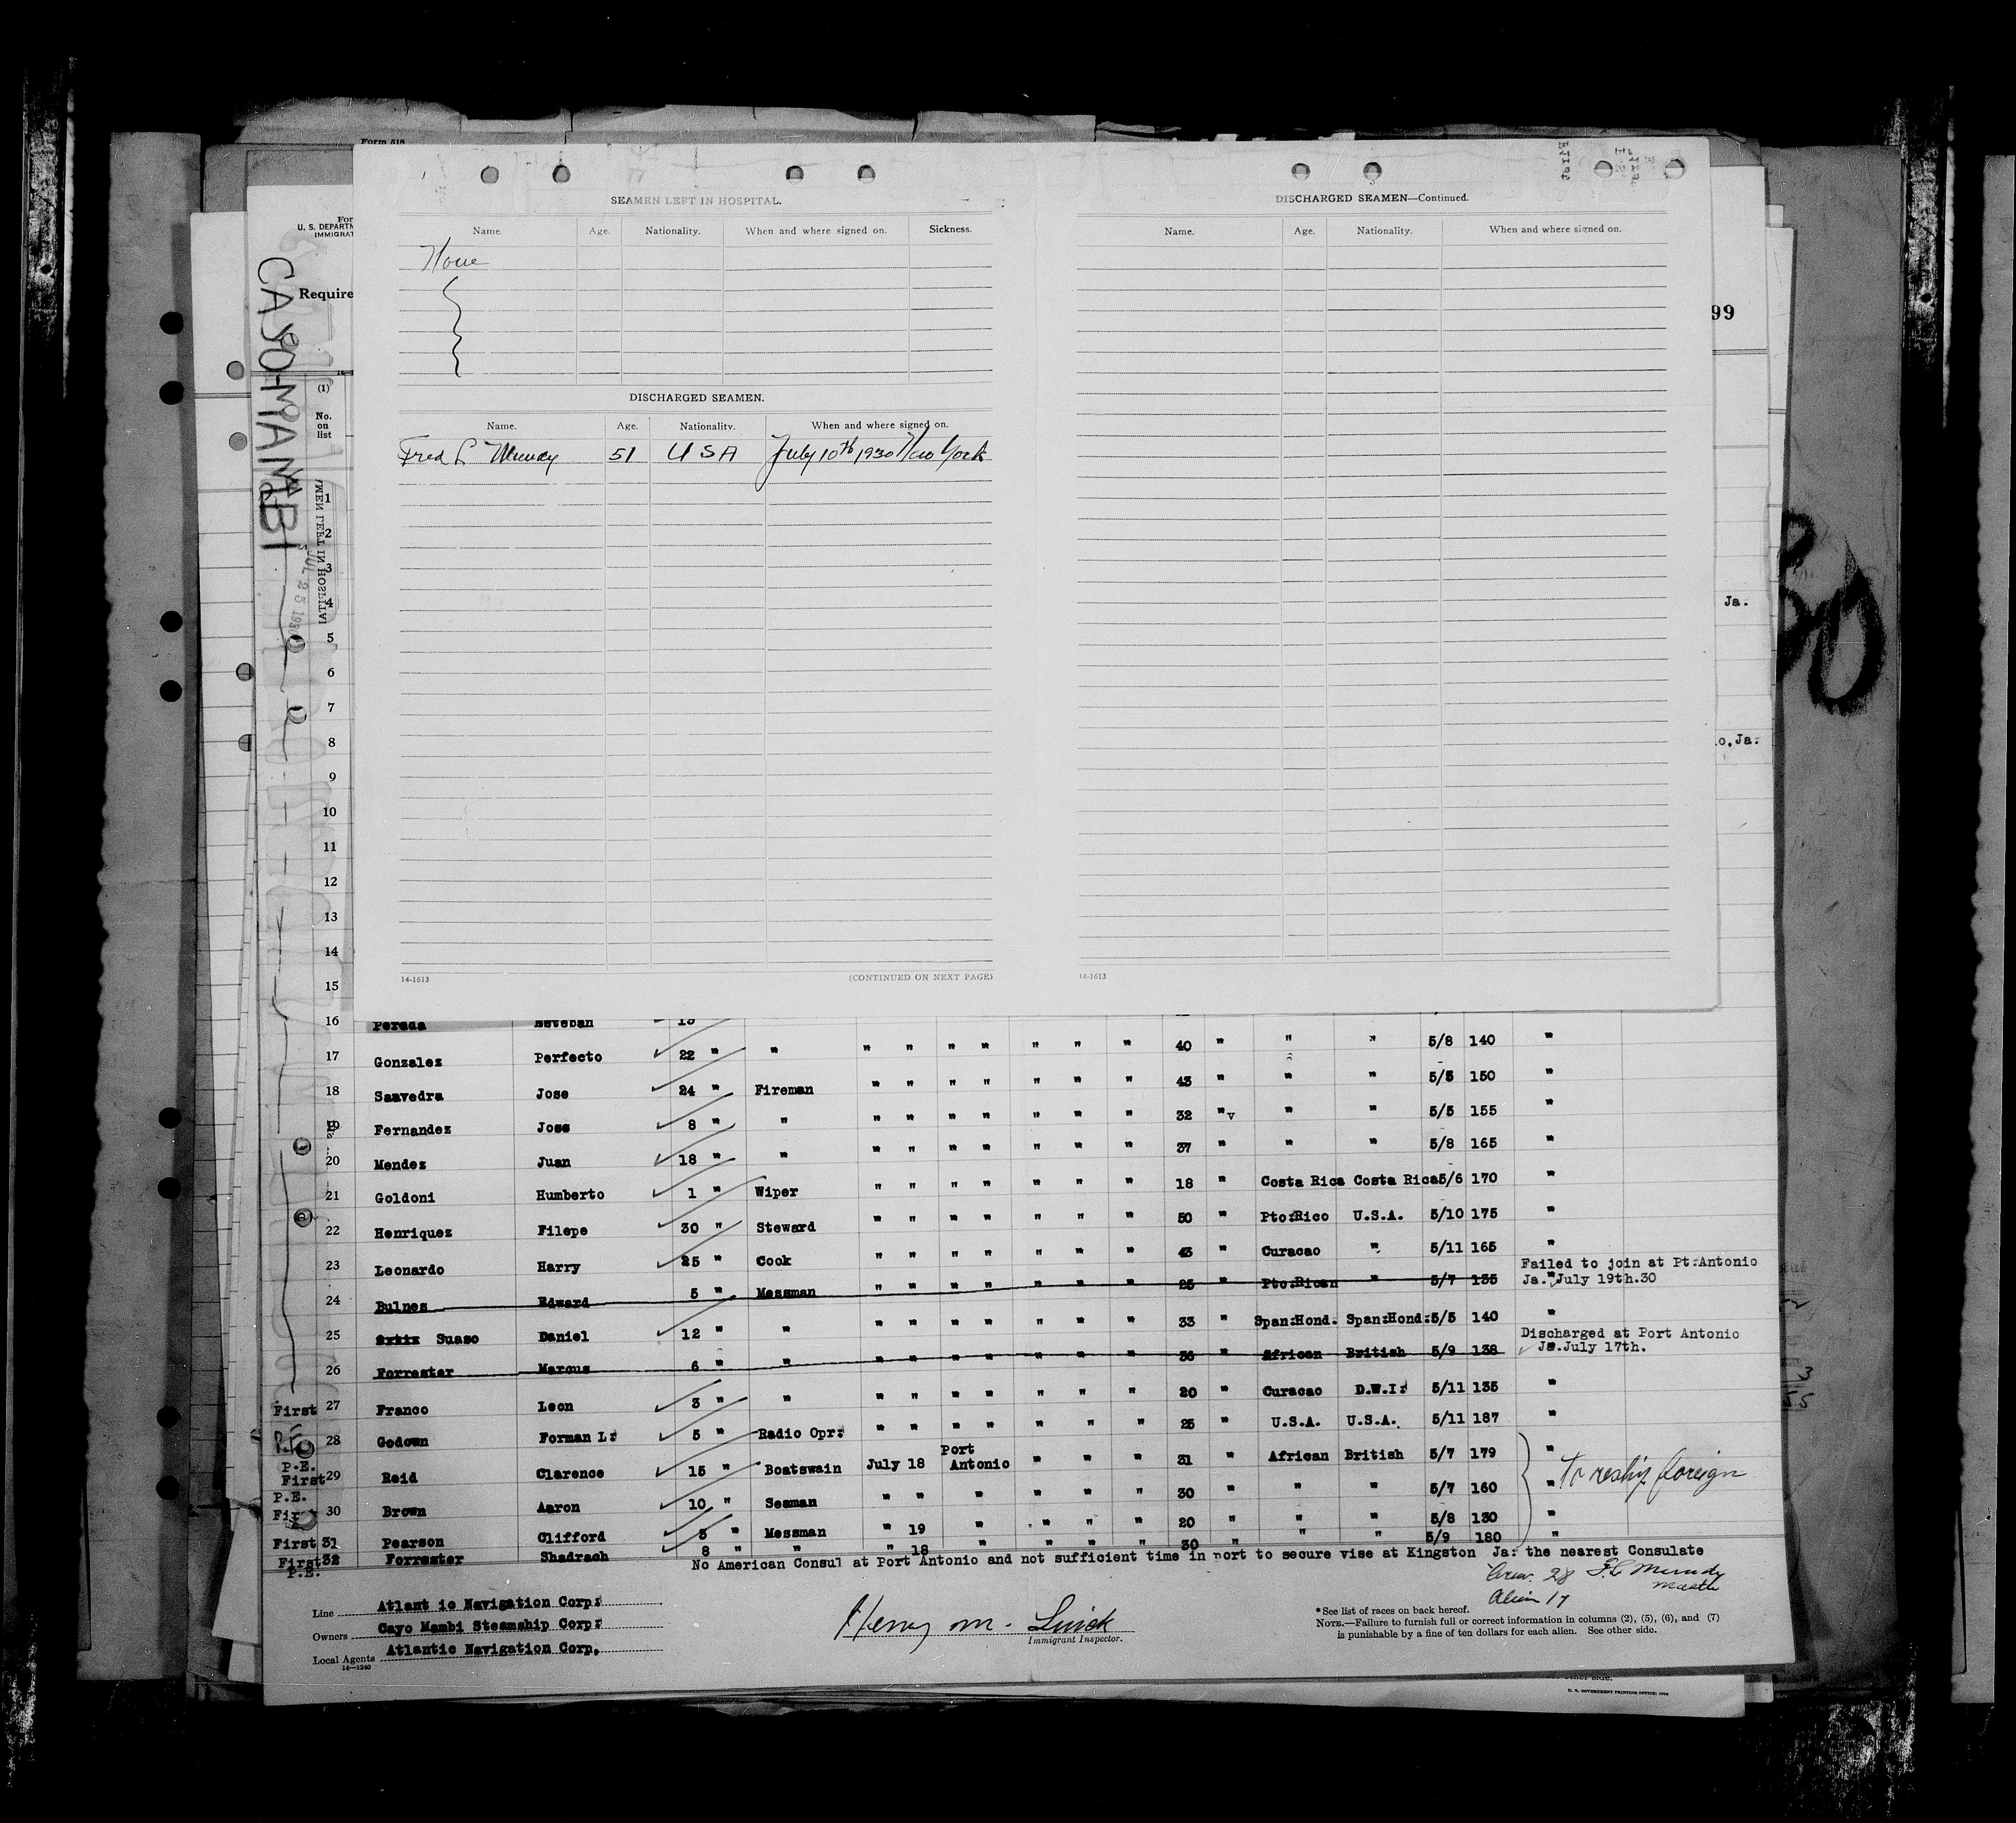 Form 518
SEAMEN LEFT IN HOSPITAL.
Name. Age. Nationality. When and where signed on. Sickness.
None
DISCHARGED SEAMEN.
Name. Age. Nationality. When and where signed on.
Fred L Mundy 51 USA July 10th 1930 New York
14-1613 (CONTINUED ON NEXT PAGE)
DISCHARGED SEAMEN—Continued.
Name. Age. Nationality. When and where signed on.
14-1613
For
U. S. DEPARTM
IMMIGRAT
Require
CAYO MAMBI
JUL 25 1930
MEN LEFT IN HOSPITAL
99
Ja.
o,Ja:
(1)
No.
on
list
1
2
3
4
5
6
7
8
9
10
11
12
13
14
15
16 Pereda Esteban 15
17 Gonzalez Perfecto 22 " " " " " " " " " 40 " " " 5/8 140 "
18 Saavedra Jose 24 " Fireman " " " " " " " 43 " " " 5/5 150 "
19 Fernandez Jose 8 " " " " " " " " " 32 "v " " 5/5 155 "
20 Mendez Juan 18 " " " " " " " " " 37 " " " 5/8 165 "
21 Goldoni Humberto 1 " Wiper " " " " " " " 18 " Costa Rica Costa Rica 5/6 170 "
22 Henriquez Filepe 30 " Steward " " " " " " " 50 " Pto:Rico U.S.A. 5/10 175 "
23 Leonardo Harry 25 " Cook " " " " " " " 43 " Curacao " 5/11 165 "
24 Bulnes Edward 5 " Messman " " " " " " " 25 " Pto:Rican " 5/7 135 Failed to join at Pt:Antonio
Ja. "July 19th.30
25 Suaso Daniel 12 " " " " " " " " " 33 " Span:Hond. Span:Hond: 5/5 140 "
26 Forrester Marcus 6 " " " " " " " " " 36 " African British 5/9 138 Discharged at Port Antonio
Ja.July 17th.
First 27 Franco Leon 3 " " " " " " " " " 20 " Curacao D.W.I: 5/11 135 "
P.E. 28 Godown Forman L: 5 " Radio Opr: " " " " " " " 25 " U.S.A. U.S.A. 5/11 187 "
P.E.
First 29 Reid Clarence 15 " Boatswain July 18 Port Antonio " " " 31 " African British 5/7 179 "
To reship foreign
P.E.
First 30 Brown Aaron 10 " Seaman " " " " " " 30 " " " 5/7 160 "
First 31 Pearson Clifford 3 " Messman " 19 " " " " 20 " " " 5/8 130 "
First 32 Forrester Shadrach 8 " " " 18 " " " " 30 " " " 5/9 180 "
P.E.
No American Consul at Port Antonio and not sufficient time in port to secure vise at Kingston Ja: the nearest Consulate
Crew. 28 F.L Mundy
Master
Alien 17
Line Atlantic Navigation Corp:
Owners Cayo Mambi Steamship Corp:
Local Agents Atlantic Navigation Corp.
14—1240
Immigrant Inspector.
*See list of races on back hereof.
NOTE.—Failure to furnish full or correct information in columns (2), (5), (6), and (7)
is punishable by a fine of ten dollars for each alien. See other side.
other side.